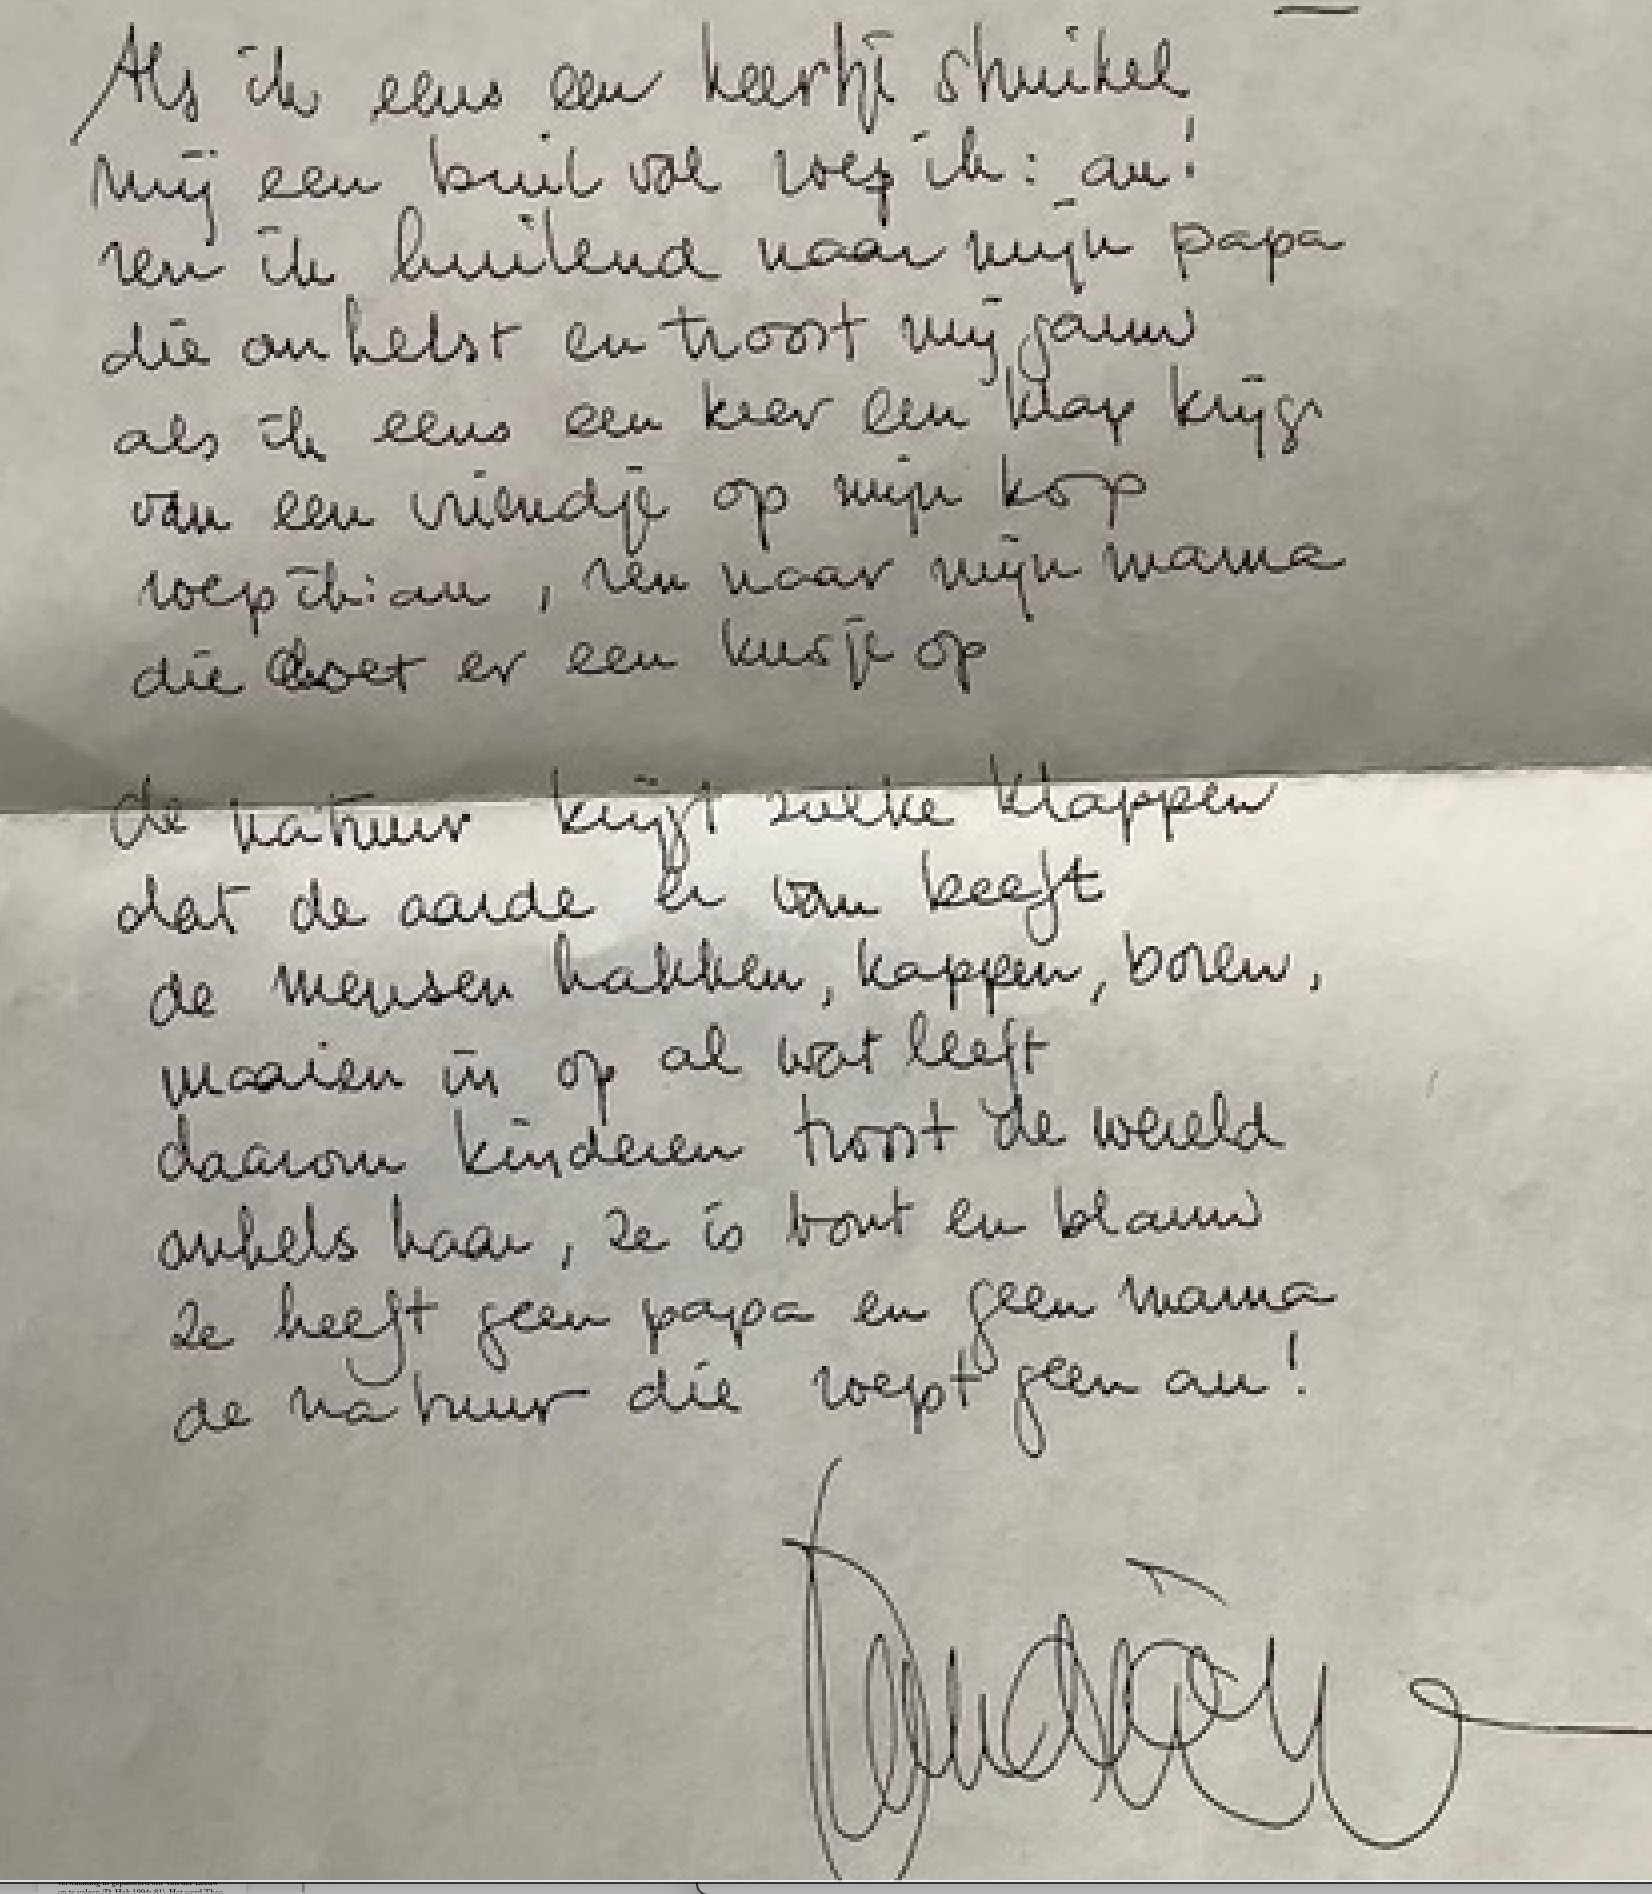 Als ik eens een keertje struikel
mij een buil val roep ik: au!
ren ik huilend naar mijn papa
die omhelst en troost mij gauw
als ik eens een keer een klap krijg
van een vriendje op mijn kop
roep ik: au, ren naar mijn mama
die doet er een kusje op
de natuur krijgt zulke klappen
dat de aarde er van beeft
de mensen hakken, kappen, boren,
maaien in op al wat leeft
daarom kinderen troost de wereld
omhels haar, ze is bont en blauw
ze heeft geen papa en geen mama
de natuur die roept geen au!